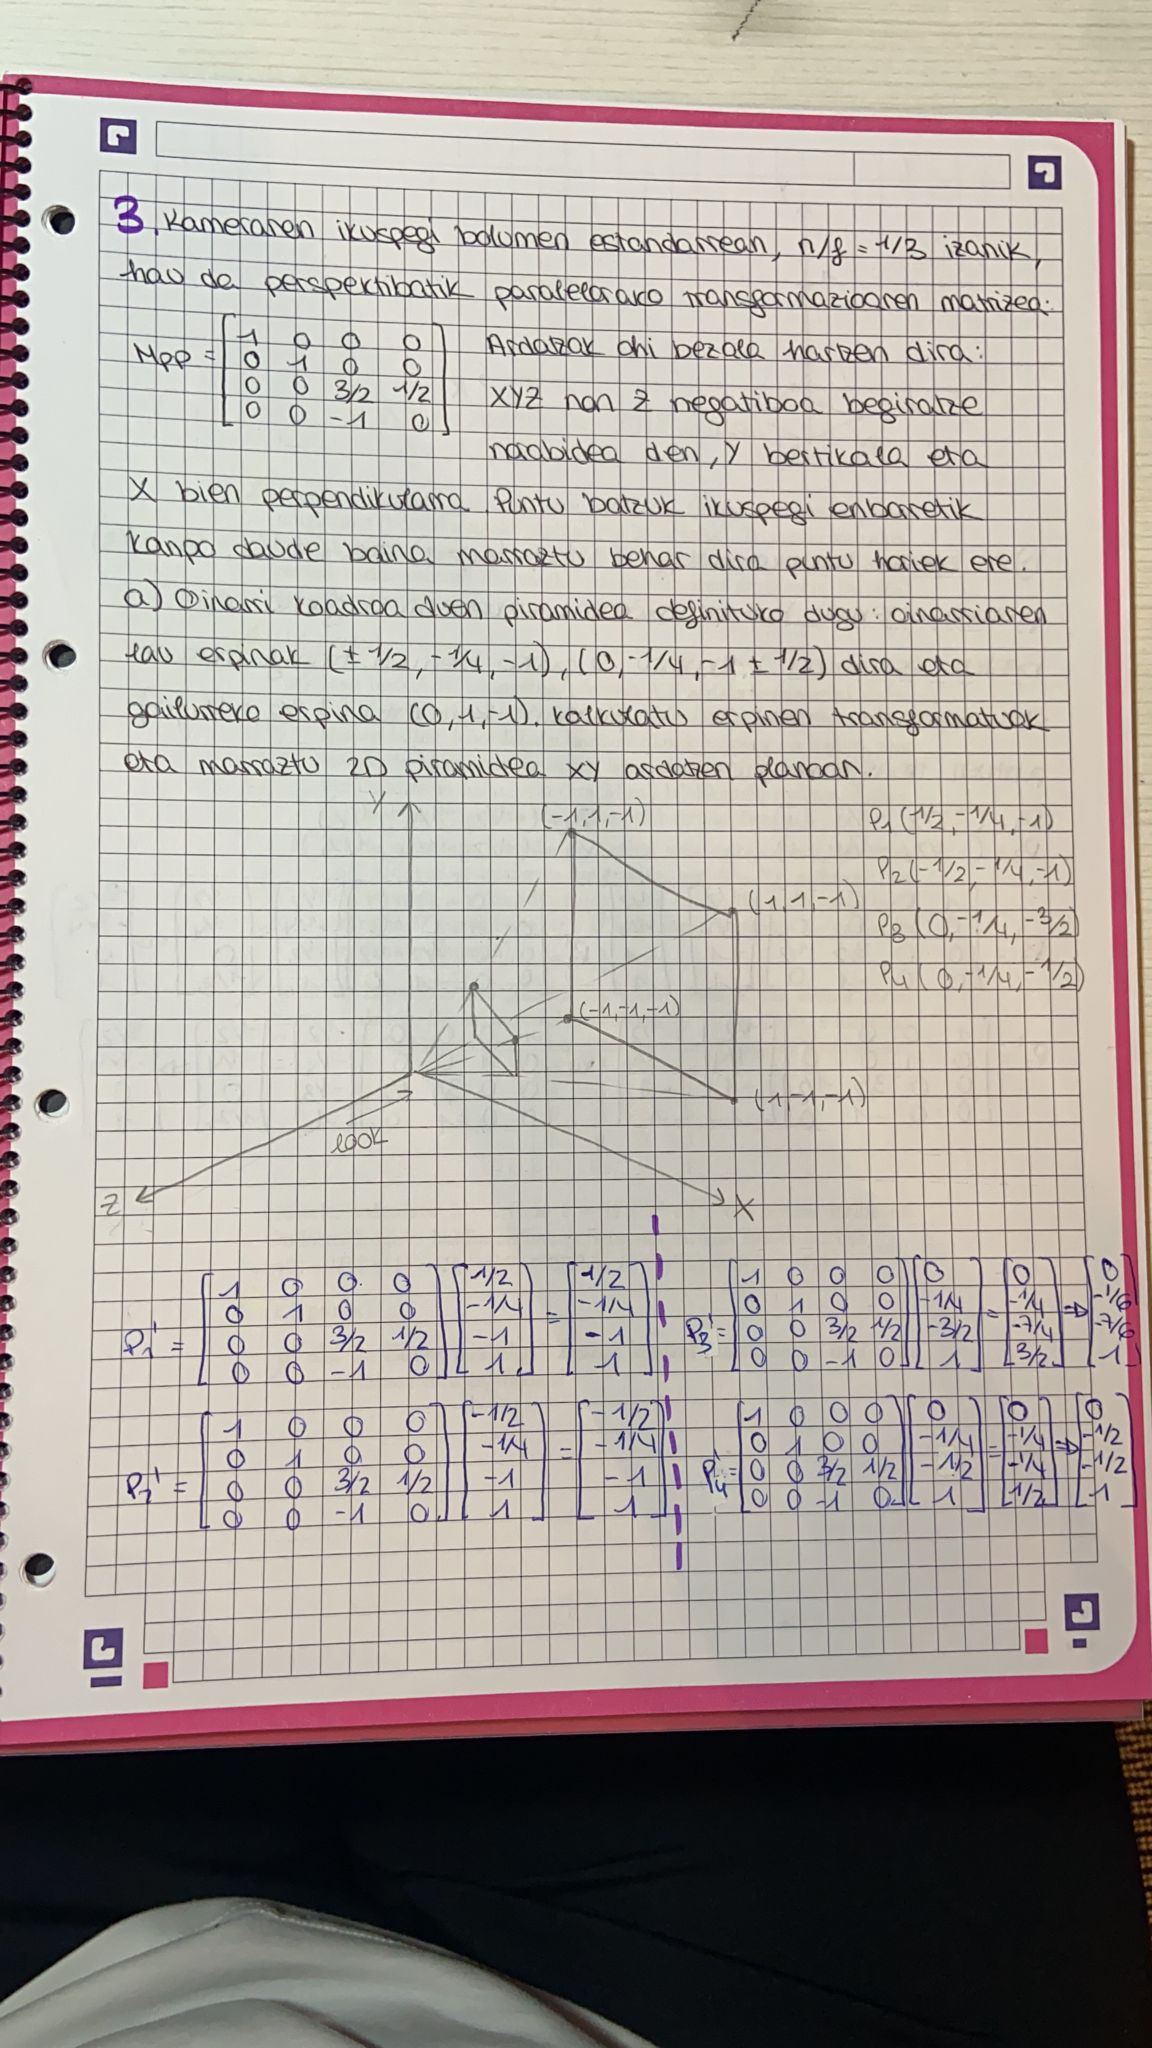 3. Kameraren ikuspegi bolumen estandarrean, n/f = 1/3 izanik,
hau da perspektibatik paralelorako transformazioaren matrizea:
Mpp = [1 0 0 0] Ardatzak ohi bezala hartzen dira:
[0 1 0 0]
[0 0 3/2 1/2] XYZ non Z negatiboa begiratze
[0 0 -1 0]
norabidea den, Y bertikala eta
X bien perpendikularra. Puntu batzuk ikuspegi enbaretik
kanpo daude baina marraztu behar dira puntu horiek ere.
a) Oinarri koadroa duen piramidea definituko dugu: oinarriaren
lau erpinak (± 1/2, -1/4, -1), (0, -1/4, -1 ± 1/2) dira eta
gailurreko erpina (0, 1, -1). Kalkulatu erpinen transformatuak
eta marraztu 2D piramidea XY ardatzen planoan.
Y
(-1,1,-1)
P1 (1/2, -1/4, -1)
P2 (-1/2, -1/4, -1)
(1,1,-1)
P3 (0, -1/4, -3/2)
P4 (0, -1/4, -1/2)
(-1,-1,-1)
(1,-1,-1)
look
Z
X
P1' = [1 0 0 0] [1/2] = [1/2]
[0 1 0 0] [-1/4] [-1/4]
[0 0 3/2 1/2] [-1] [-1]
[0 0 -1 0] [1] [1]
P3' = [1 0 0 0] [0] = [0] => [0]
[0 1 0 0] [-1/4] [-1/4] [-1/6]
[0 0 3/2 1/2] [-3/2] [-7/4] [-7/6]
[0 0 -1 0] [1] [3/2] [1]
P2' = [1 0 0 0] [-1/2] = [-1/2]
[0 1 0 0] [-1/4] [-1/4]
[0 0 3/2 1/2] [-1] [-1]
[0 0 -1 0] [1] [1]
P4' = [1 0 0 0] [0] = [0] => [0]
[0 1 0 0] [-1/4] [-1/4] [-1/2]
[0 0 3/2 1/2] [-1/2] [-1/4] [-1/2]
[0 0 -1 0] [1] [1/2] [1]